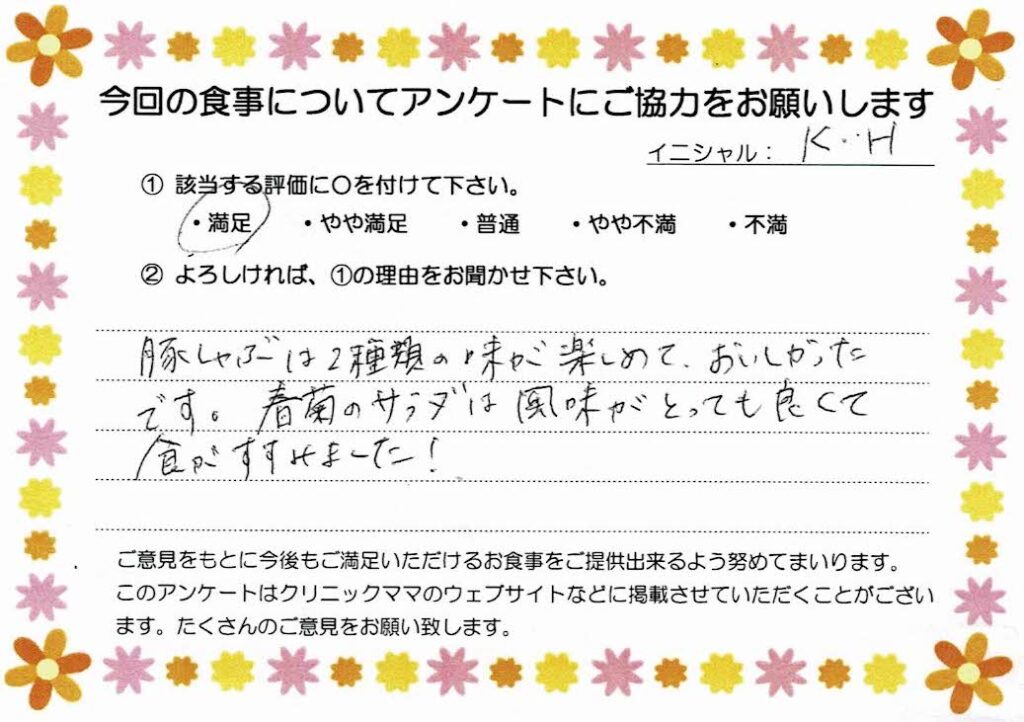 今回の食事についてアンケートにご協力をお願いします
イニシャル： K・H
① 該当する評価に〇を付けて下さい。
・満足 ・やや満足 ・普通 ・やや不満 ・不満
② よろしければ、①の理由をお聞かせ下さい。
豚しゃぶは2種類の味が楽しめて、おいしかった
です。春菊のサラダは風味がとっても良くて
食がすすみました！
ご意見をもとに今後もご満足いただけるお食事をご提供出来るよう努めてまいります。
このアンケートはクリニックママのウェブサイトなどに掲載させていただくことがござい
ます。たくさんのご意見をお願い致します。